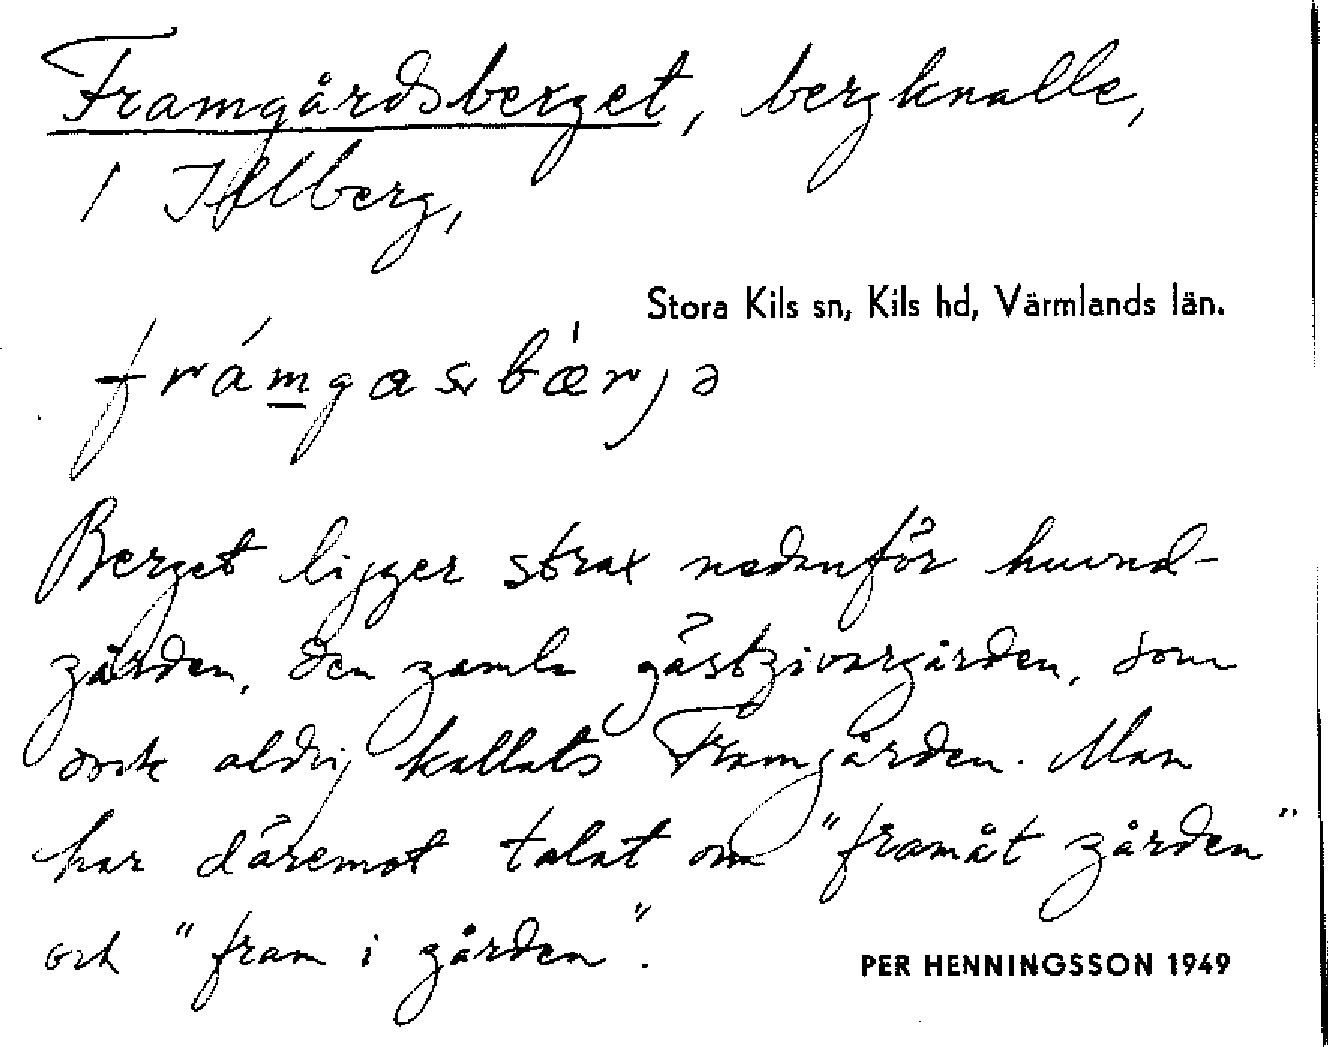 Framgårdsberget, bergknalle,
i Illberg,
Stora Kils sn, Kils hd, Värmlands län.
frámgasbǽrjə
Berget ligger strax nedanför huvud-
gården, den gamla gästgivargården, som
dock aldrig kallats Framgården. Man
har däremot talat om "framåt gården"
och "fram i gården".
PER HENNINGSSON 1949